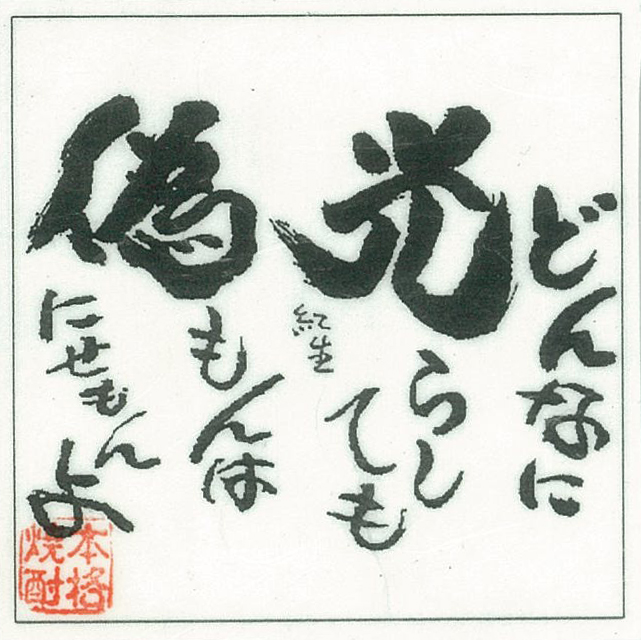 どんなに
光らし
ても
偽もんは
にせもん
よ
紅生
本格
焼酎